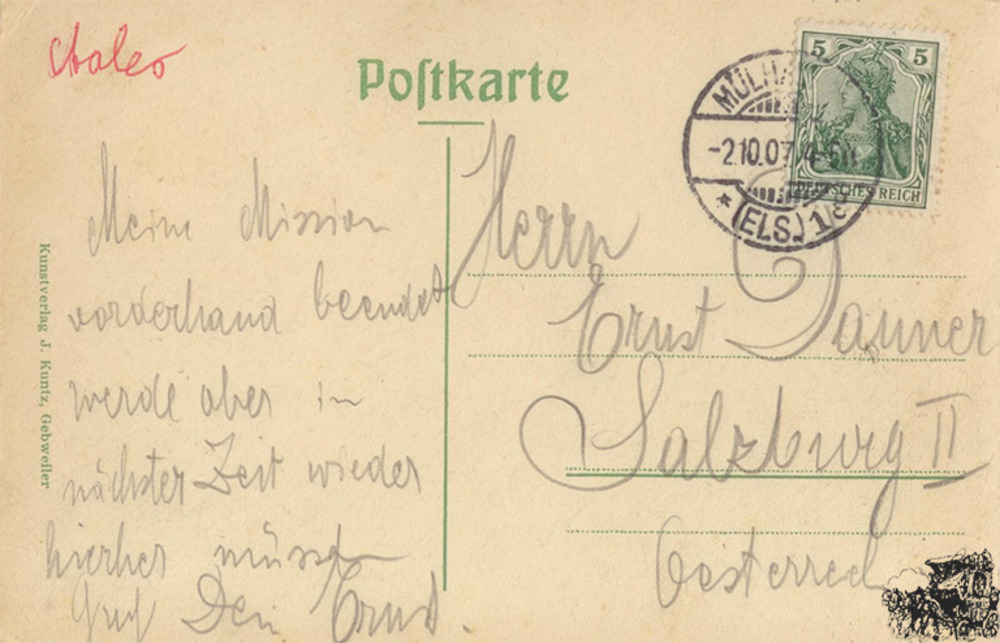 Postkarte
5 5
DEUTSCHES REICH
MÜLHA
-2.10.07. 4-5N
* (ELS.) 1
Meine Mission
vorderhand beendet
werde aber in
nächster Zeit wieder
hierher müssen
Gruß Dein Ernst.
Herrn
Ernst
Salzburg II
Oesterreich
Kunstverlag J. Kuntz, Gebweiler